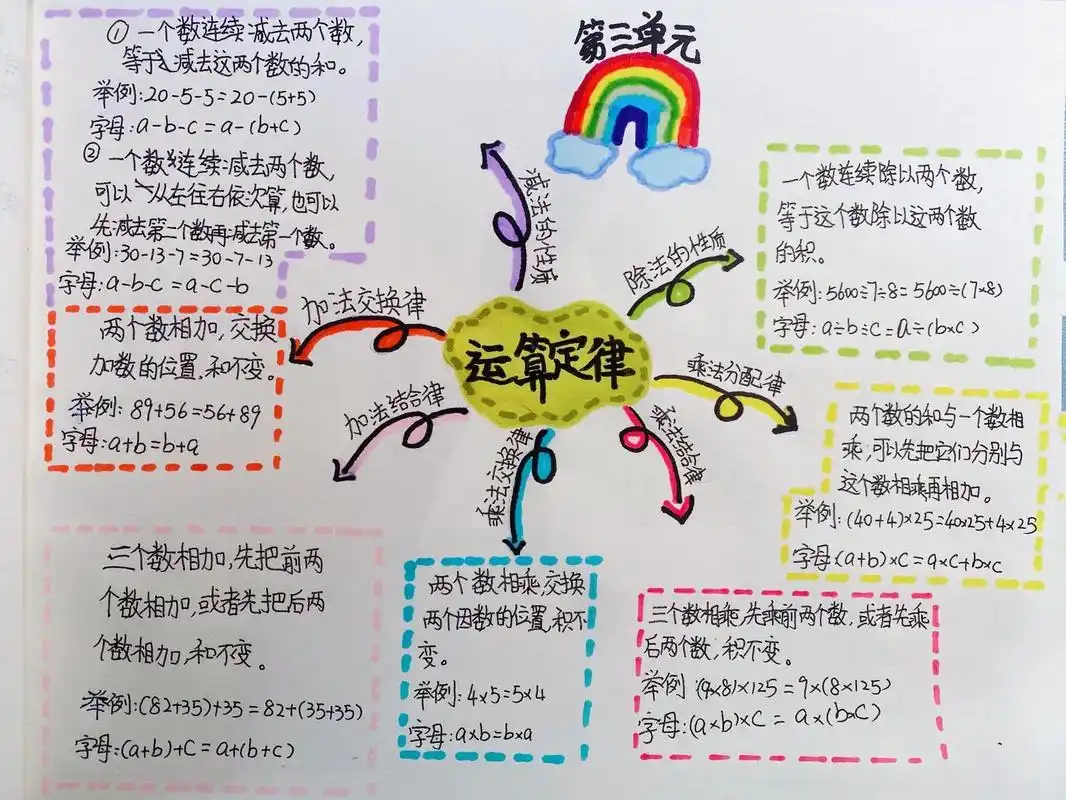 第三单元
运算定律
减法的性质
① 一个数连续减去两个数,
等于减去这两个数的和。
举例:20-5-5=20-(5+5)
字母:a-b-c=a-(b+c)
② 一个数连续减去两个数,
可以从左往右依次算,也可以
先减去第二个数再减去第一个数。
举例:30-13-7=30-7-13
字母:a-b-c=a-c-b
加法交换律
两个数相加,交换
加数的位置,和不变。
举例:89+56=56+89
字母:a+b=b+a
加法结合律
三个数相加,先把前两
个数相加,或者先把后两
个数相加,和不变。
举例:(82+35)+35=82+(35+35)
字母:(a+b)+c=a+(b+c)
乘法交换律
两个数相乘,交换
两个因数的位置,积不
变。
举例:4×5=5×4
字母:a×b=b×a
乘法结合律
三个数相乘,先乘前两个数,或者先乘
后两个数,积不变。
举例(9×8)×125=9×(8×125)
字母:(a×b)×c=a×(b×c)
乘法分配律
两个数的和与一个数相
乘,可以先把它们分别与
这个数相乘再相加。
举例:(40+4)×25=40×25+4×25
字母:(a+b)×c=a×c+b×c
除法的性质
一个数连续除以两个数,
等于这个数除以这两个数
的积。
举例:5600÷7÷8=5600÷(7×8)
字母:a÷b÷c=a÷(b×c)